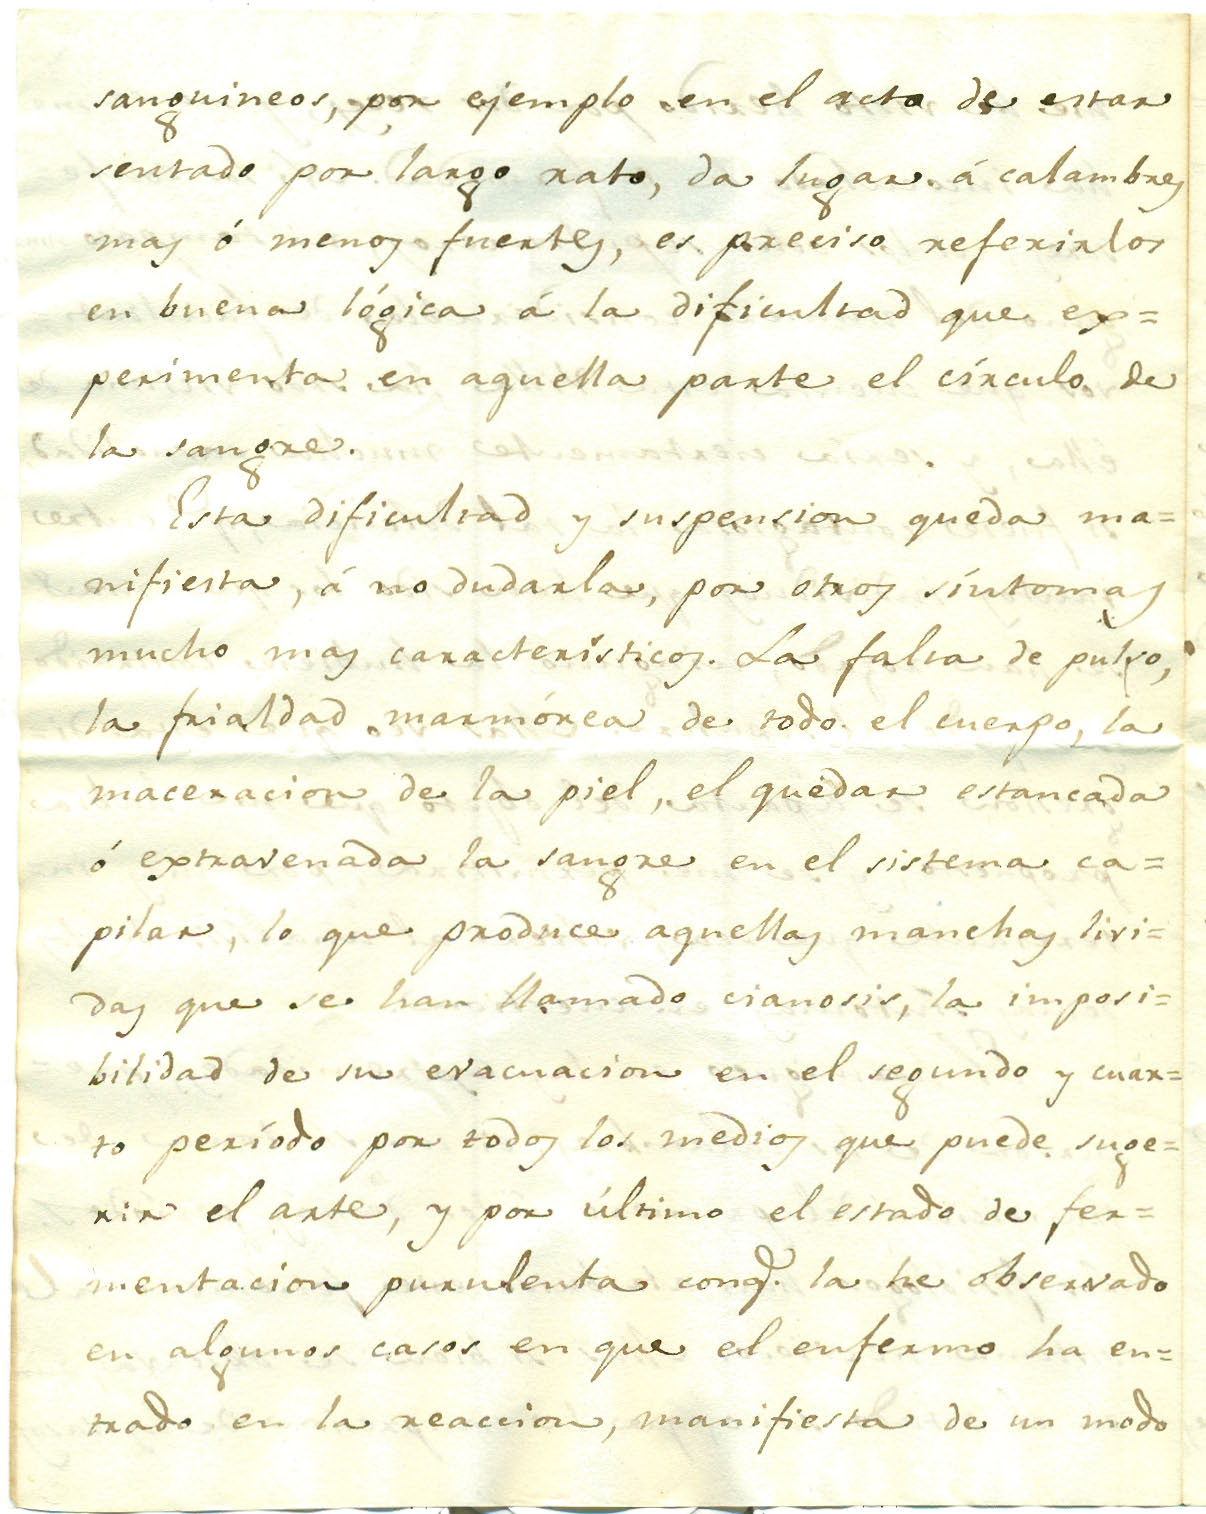 sanguineos, por ejemplo en el acto de estar
sentado por largo rato, da lugar á calambres
mas ó menos fuertes, es preciso referirlos
en buena lógica á la dificultad que ex=
perimenta en aquella parte el círculo de
la sangre.
Esta dificultad y suspension queda ma=
nifiesta, á no dudarla, por otros síntomas
mucho mas característicos. La falta de pulso,
la frialdad marmórea de todo el cuerpo, la
maceracion de la piel, el quedar estancada
ó extravenada la sangre en el sistema ca=
pilar, lo que produce aquellas manchas livi=
das que se han llamado cianosis, la imposi=
bilidad de su evacuacion en el segundo y cuar=
to período por todos los medios que puede suge=
rir el arte, y por último el estado de fer=
mentacion purulenta conq.e la he observado
en algunos casos en que el enfermo ha en=
trado en la reaccion, manifiesta de un modo